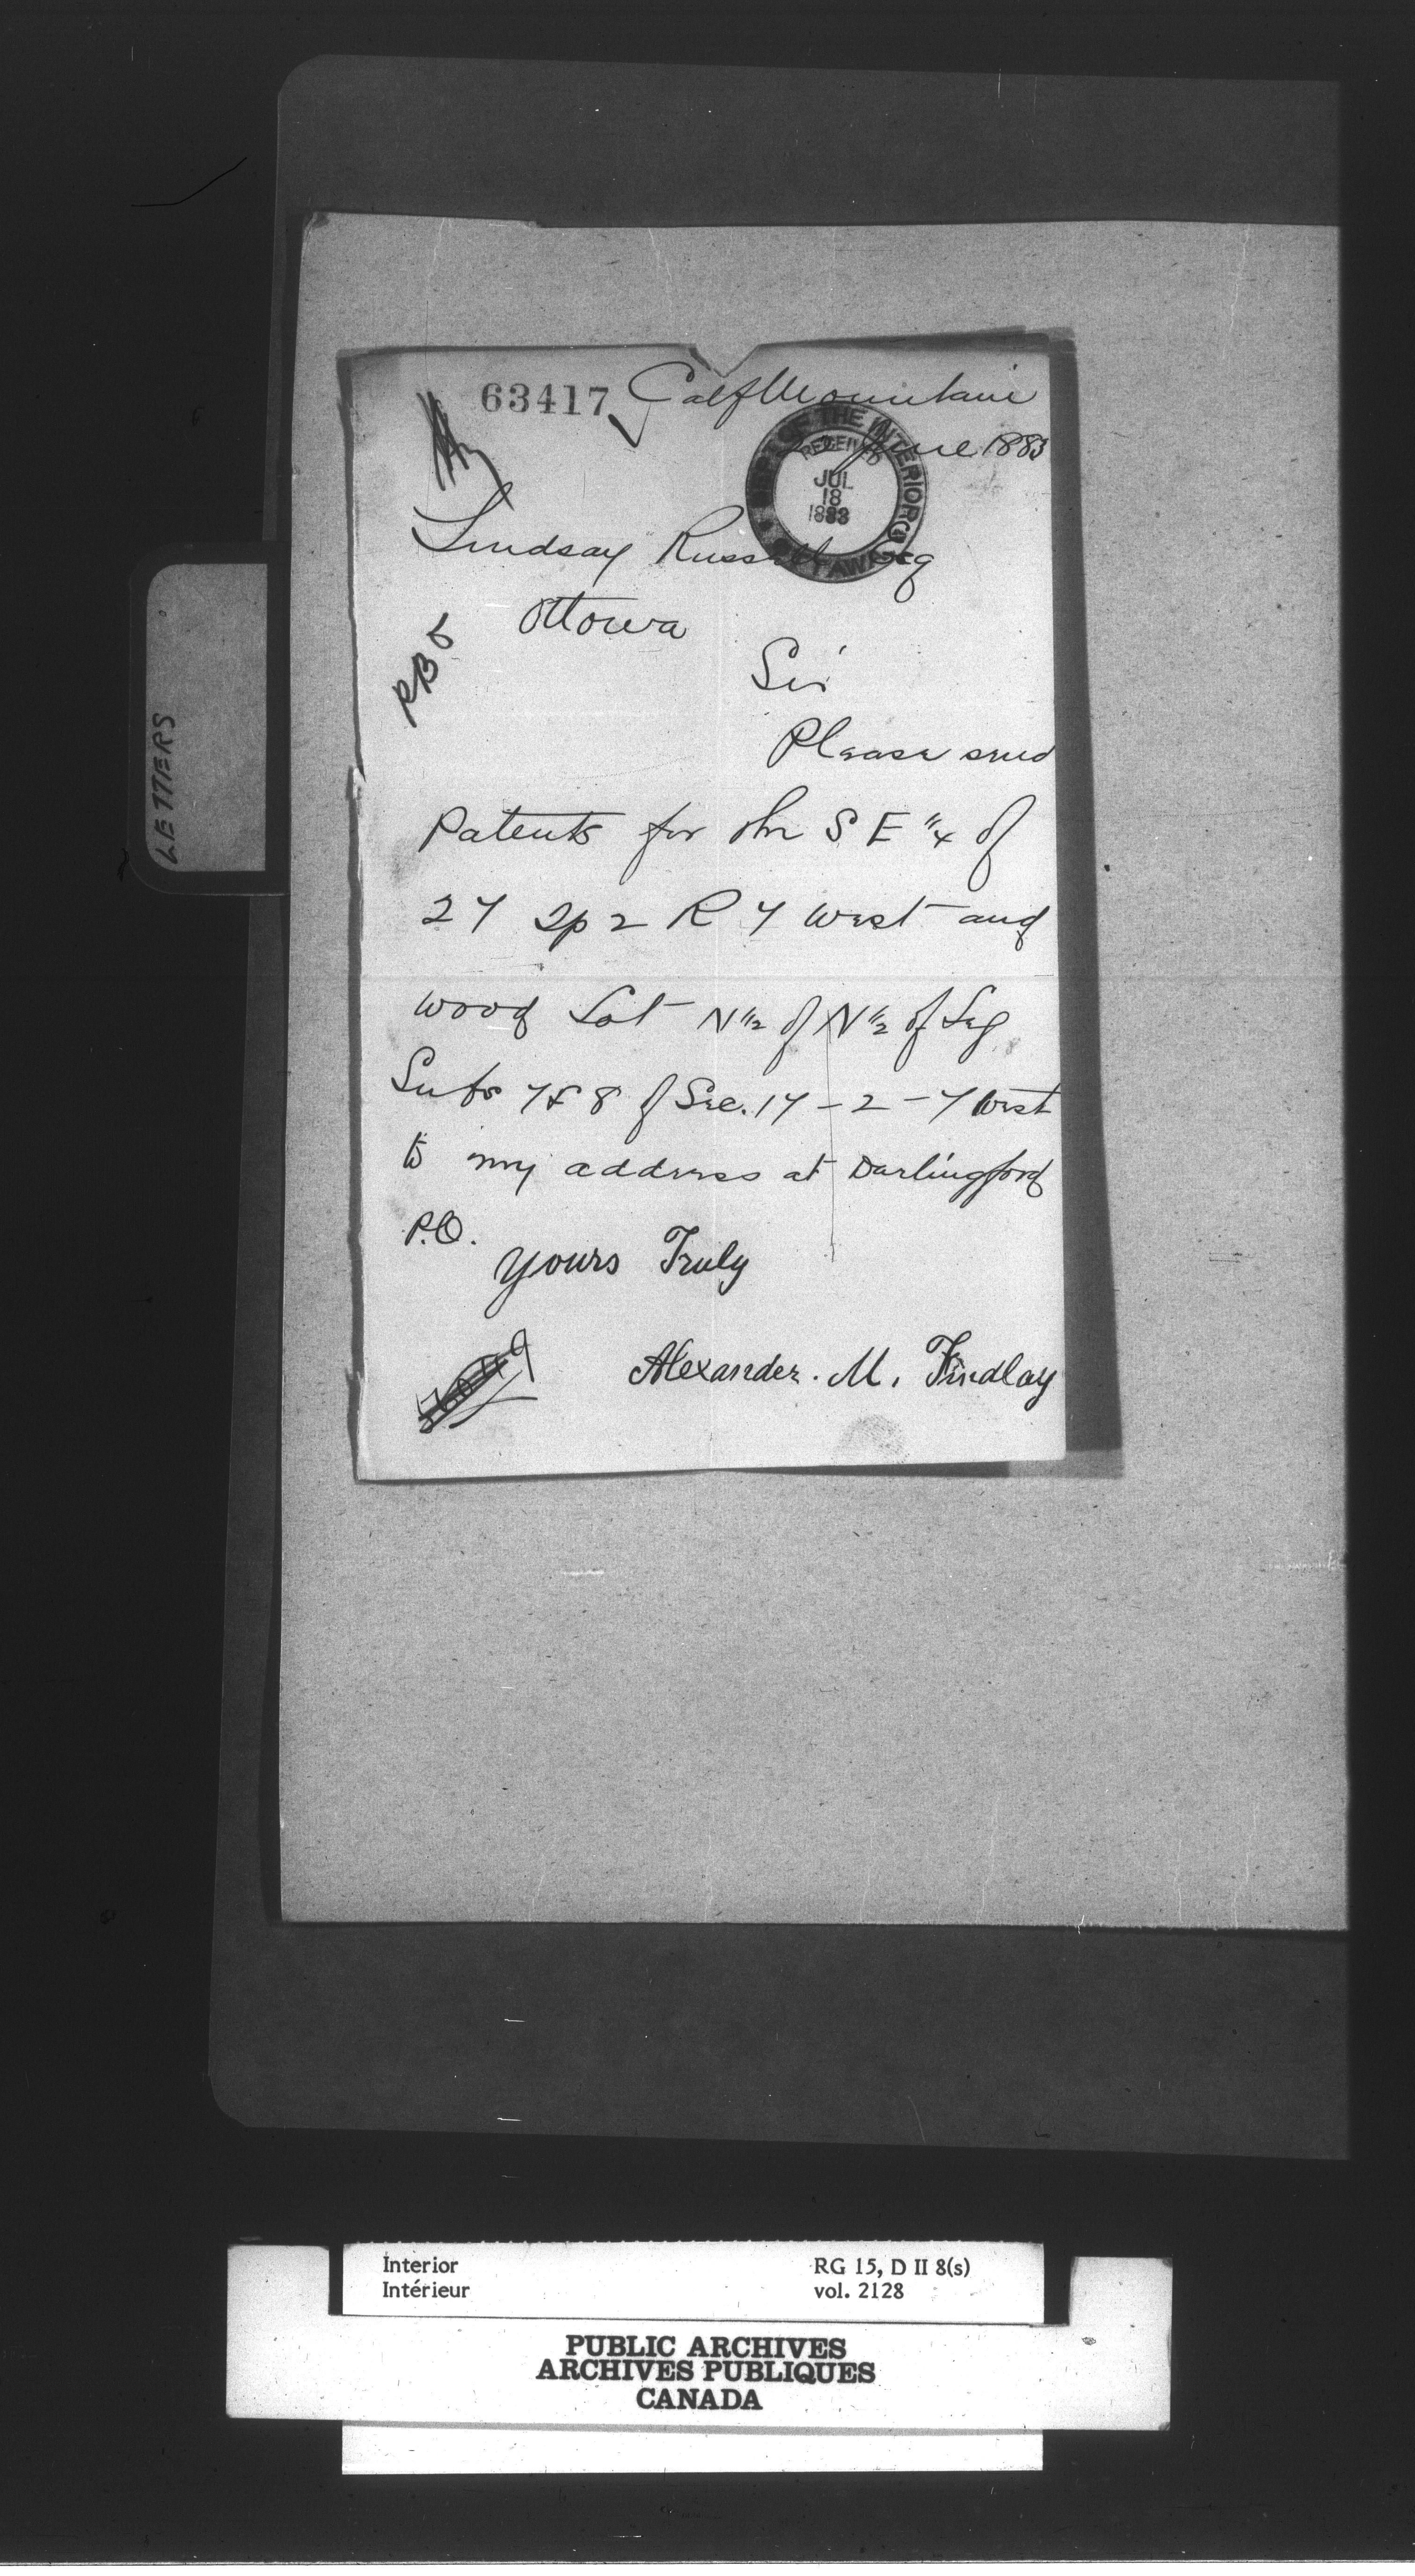 63417 Calf Mountain
June 1883
DEPT OF THE INTERIOR
RECEIVED
JUL
18
1883
OTTAWA
Lindsay Russell Esq
Ottowa
RB6
Sir
Please send
Patents for the S E 1/4 of
27 Tp 2 R 7 West and
Wood Lot N 1/2 of N 1/2 of Leg
Subs 7 & 8 of Sec. 17 - 2 - 7 West
to my address at Darlingford
P.O.
Yours Truly
Alexander. M. Findlay
LETTERS
Interior RG 15, D II 8(s)
Intérieur vol. 2128
PUBLIC ARCHIVES
ARCHIVES PUBLIQUES
CANADA